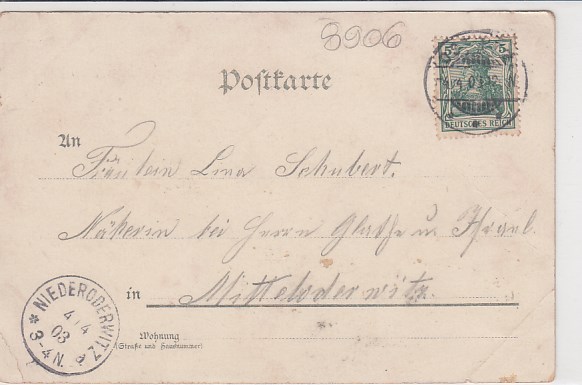 8906
Postkarte
5 5
DEUTSCHES REICH
An
Fräulein Lina Schubert.
Näherin bei Herrn Glathe u.
in Mitteloderwitz.
Wohnung
(Straße und Hausnummer)
NIEDERODERWITZ
4/4
03
* 3-4 N. *